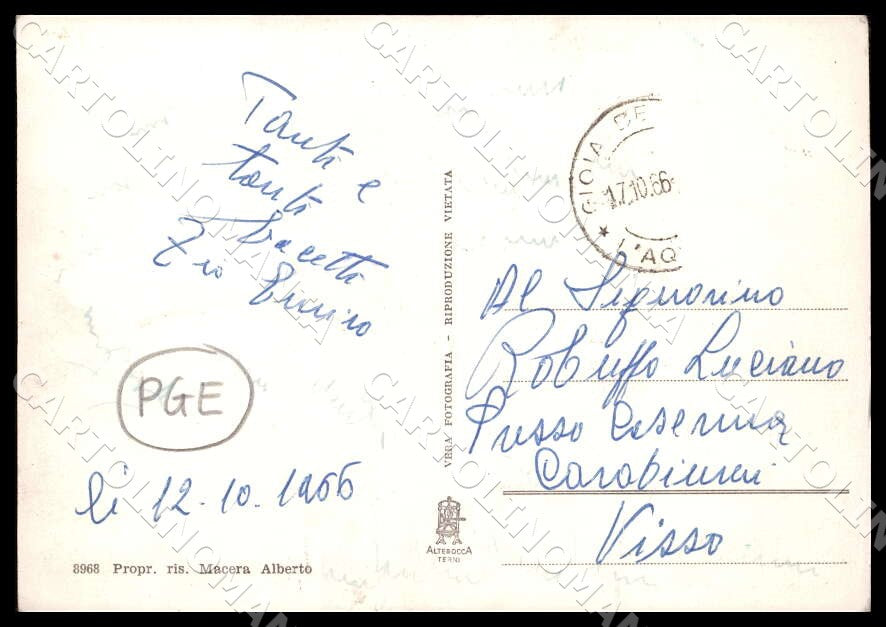 Tanti e
tanti
bacetti
Zio
PGE
li 12.10.1966
8968 Propr. ris. Macera Alberto
VERA FOTOGRAFIA - RIPRODUZIONE VIETATA
ALTEROCCA
TERNI
GIOIA DE
17.10.66
L'AQ
Al Signorino
Robuffo Luciano
Presso Caserma
Carabinieri
Visso
CARTOLINOMANIA